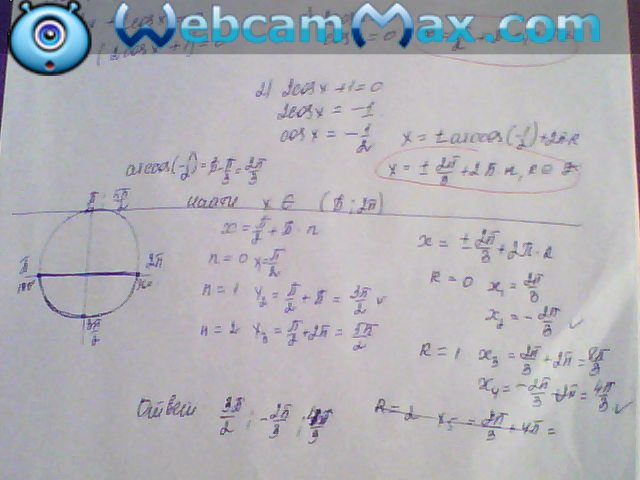 WebcamMax.com
cosx = 0
2) 2cosx + 1 = 0
2cosx = -1
cosx = -1/2
x = ± arccos(-1/2) + 2πk
arccos(-1/2) = π - π/3 = 2π/3
x = ± 2π/3 + 2π
найти x ∈ (π; 2π)
π/2 ; 5π/2
π
2π
3π/2
x = π/2 + π · n
n = 0 x = π/2
n = 1 x₂ = π/2 + π = 3π/2 ✓
n = 2 x₃ = π/2 + 2π = 5π/2
x = ± 2π/3 + 2π · k
k = 0 x₁ = 2π/3
x₂ = -2π/3 ✓
k = 1 x₃ = 2π/3 + 2π = 8π/3
x₄ = -2π/3 + 2π = 4π/3 ✓
k = 2 x₅ = 2π/3 + 4π =
Ответ 3π/2 ; -2π/3 ;